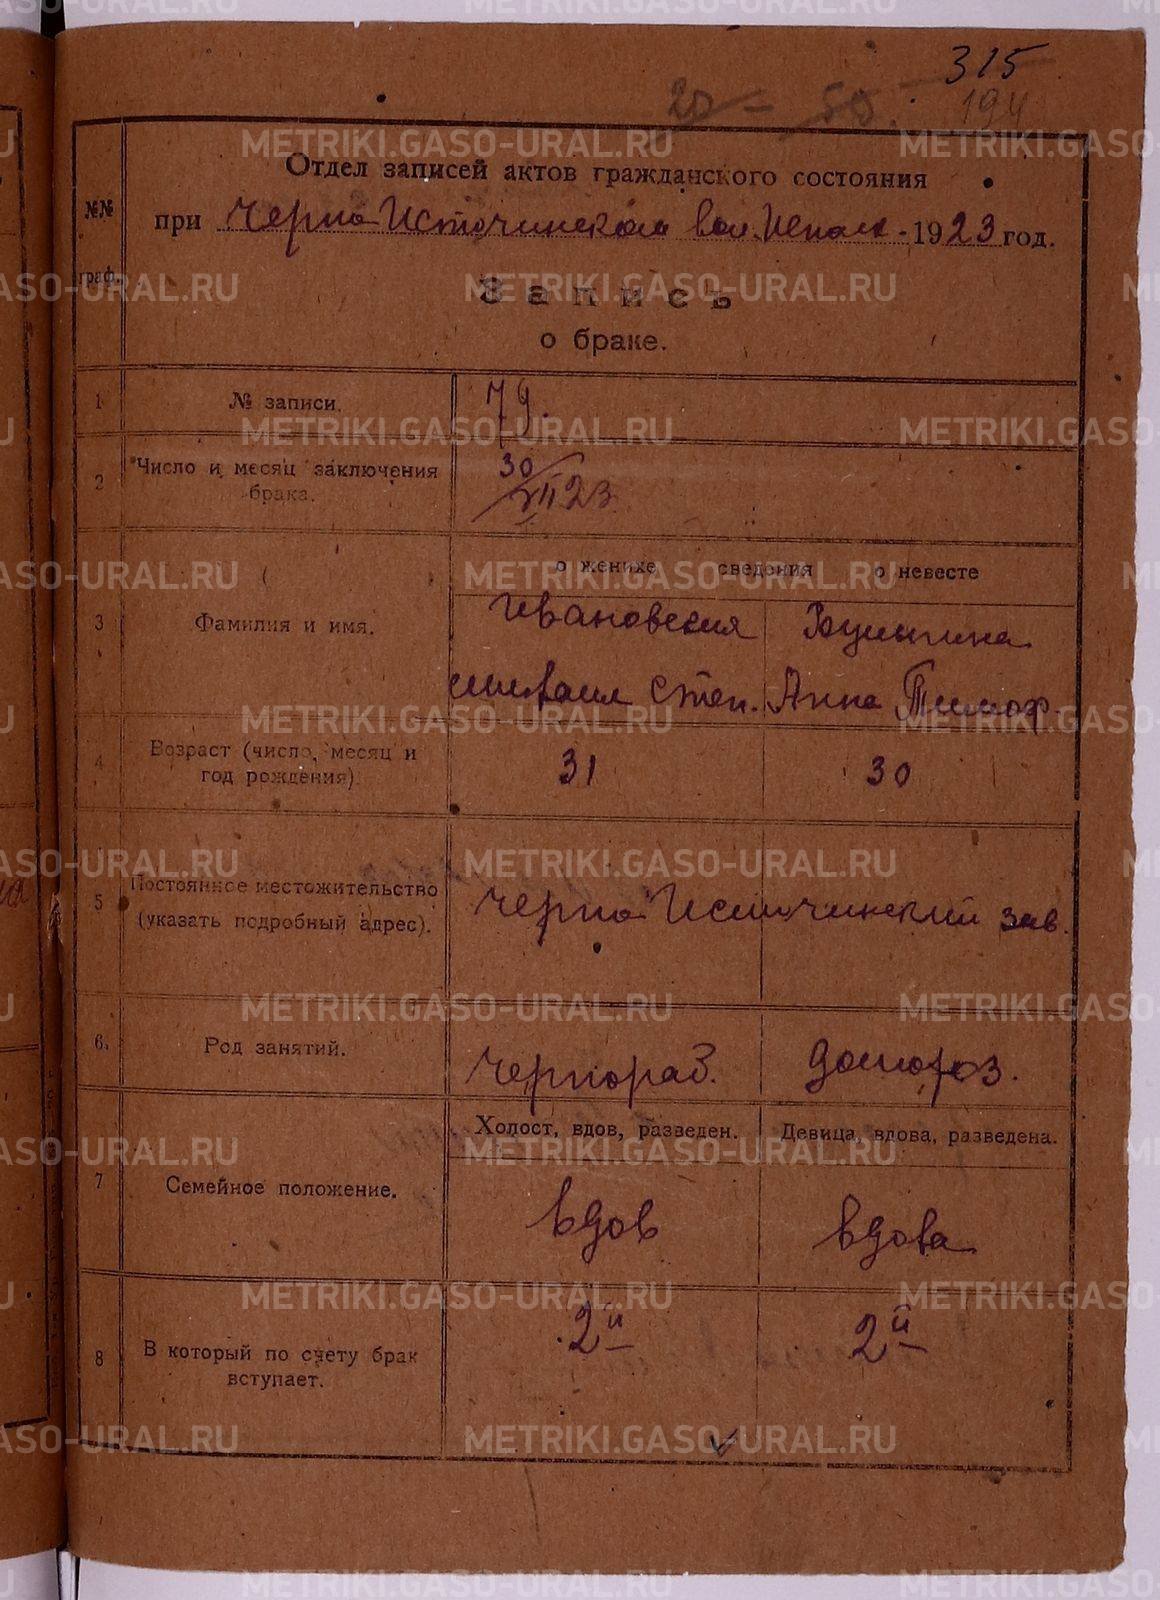 315
20 - 50.
194
Отдел записей актов гражданского состояния
№№ граф.
при Черно Источинском вол. Исполк - 1923 год.
Запись
о браке.
1 № записи. 79.
2 Число и месяц заключения брака. 30/VII 23
о женихе сведения о невесте
3 Фамилия и имя.
Ивановских
Михаил Степ. Анна Тимоф.
4 Возраст (число, месяц и год рождения). 31 30
5 Постоянное местожительство (указать подробный адрес). Черно Источинский зав.
6. Род занятий. Чернораб. домохоз.
Холост, вдов, разведен. Девица, вдова, разведена.
7 Семейное положение. вдов вдова
8 В который по счету брак вступает. 2й 2й
METRIKI.GASO-URAL.RU